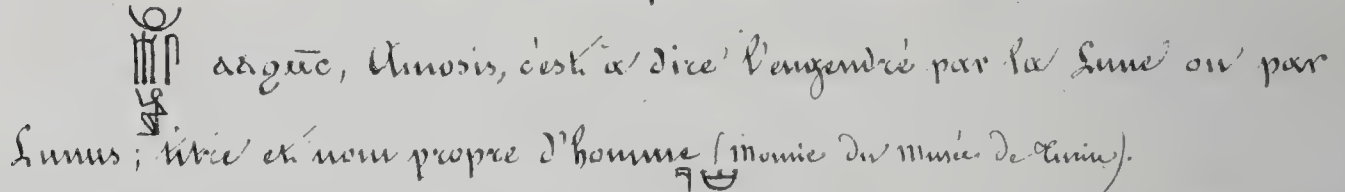 ⲁⲁϩⲙ̄ⲥ, Amosis, c'est à dire l'engendré par la Lune ou par
Lunus; titre et nom propre d'homme (momie du musée de Turin).